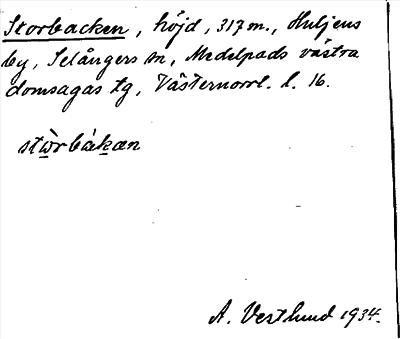 Storbacken, höjd, 317 m., Huljens
by, Selångers sn, Medelpads västra
domsagas tg, Västernorrl. l. 16.
stὼrbákæn
A. Vestlund 1934.